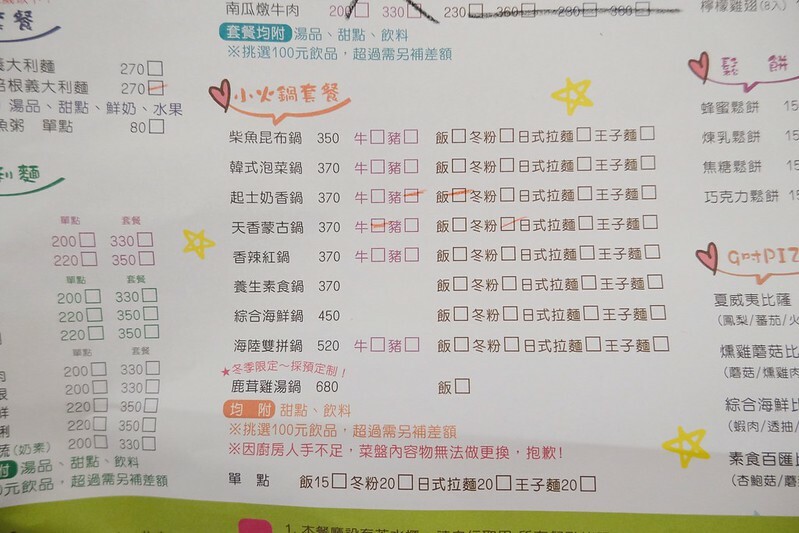 南瓜燉牛肉 200□ 330□ 230□ 360□ 230□ 380□
套餐均附 湯品、甜點、飲料
※挑選100元飲品，超過需另補差額
套餐
義大利麵 270□
培根義大利麵 270□
湯品、甜點、鮮奶、水果
魚粥 單點 80□
利麵
單點 套餐
200□ 330□
220□ 350□
單點 套餐
200□ 330□
220□ 350□
220□ 350□
單點 套餐
200□ 330□
220□ 350□
220□ 350□
220□ 350□
(奶素) 200□ 330□
附 湯品、甜點、飲料
0元飲品，超過需另補差額
小火鍋套餐
柴魚昆布鍋 350 牛□豬□ 飯□冬粉□日式拉麵□王子麵□
韓式泡菜鍋 370 牛□豬□ 飯□冬粉□日式拉麵□王子麵□
起士奶香鍋 370 牛□豬□ 飯□冬粉□日式拉麵□王子麵□
天香蒙古鍋 370 牛□豬□ 飯□冬粉□日式拉麵□王子麵□
香辣紅鍋 370 牛□豬□ 飯□冬粉□日式拉麵□王子麵□
養生素食鍋 370 飯□冬粉□日式拉麵□王子麵□
綜合海鮮鍋 450 飯□冬粉□日式拉麵□王子麵□
海陸雙拼鍋 520 牛□豬□ 飯□冬粉□日式拉麵□王子麵□
★冬季限定～採預定制！
鹿茸雞湯鍋 680 飯□
均附 甜點、飲料
※挑選100元飲品，超過需另補差額
※因廚房人手不足，菜盤內容物無法做更換，抱歉！
單點 飯15□冬粉20□日式拉麵20□王子麵20□
檸檬雞翅(8入)
鬆餅
蜂蜜鬆餅 15
煉乳鬆餅 15
焦糖鬆餅 15
巧克力鬆餅 15
夏威夷比薩
(鳳梨/蕃茄/火
燻雞蘑菇比
(蘑菇/燻雞肉
綜合海鮮比
(蝦肉/透抽/
素食百匯比
(杏鮑菇/蘑